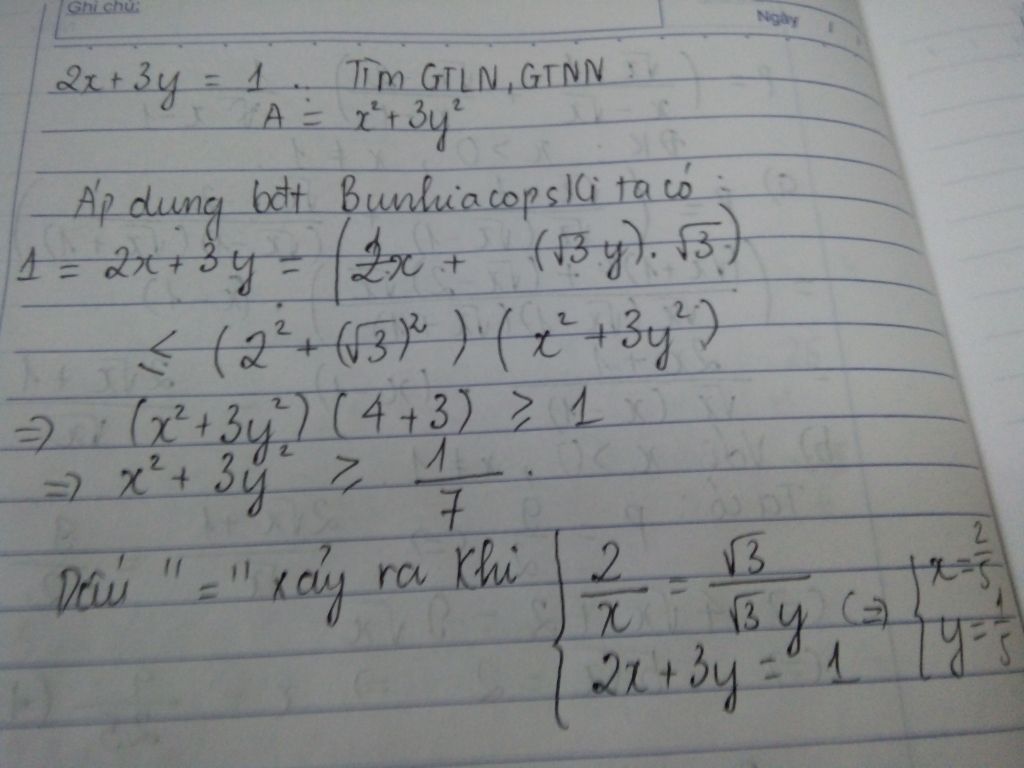 Ghi chú:
Ngày
2x + 3y = 1 .. Tìm GTLN, GTNN
A = x² + 3y²
Áp dung bđt Bunhiacopski ta có :
1 = 2x + 3y = (2x + (√3 y). √3)
≤ (2² + (√3)²) . (x² + 3y²)
=> (x² + 3y²) (4 + 3) ≥ 1
=> x² + 3y² ≥ 1/7 .
Dấu "=" xảy ra khi { 2/x = √3/√3y (=> { x = 2/5
2x + 3y = 1 y = 1/5